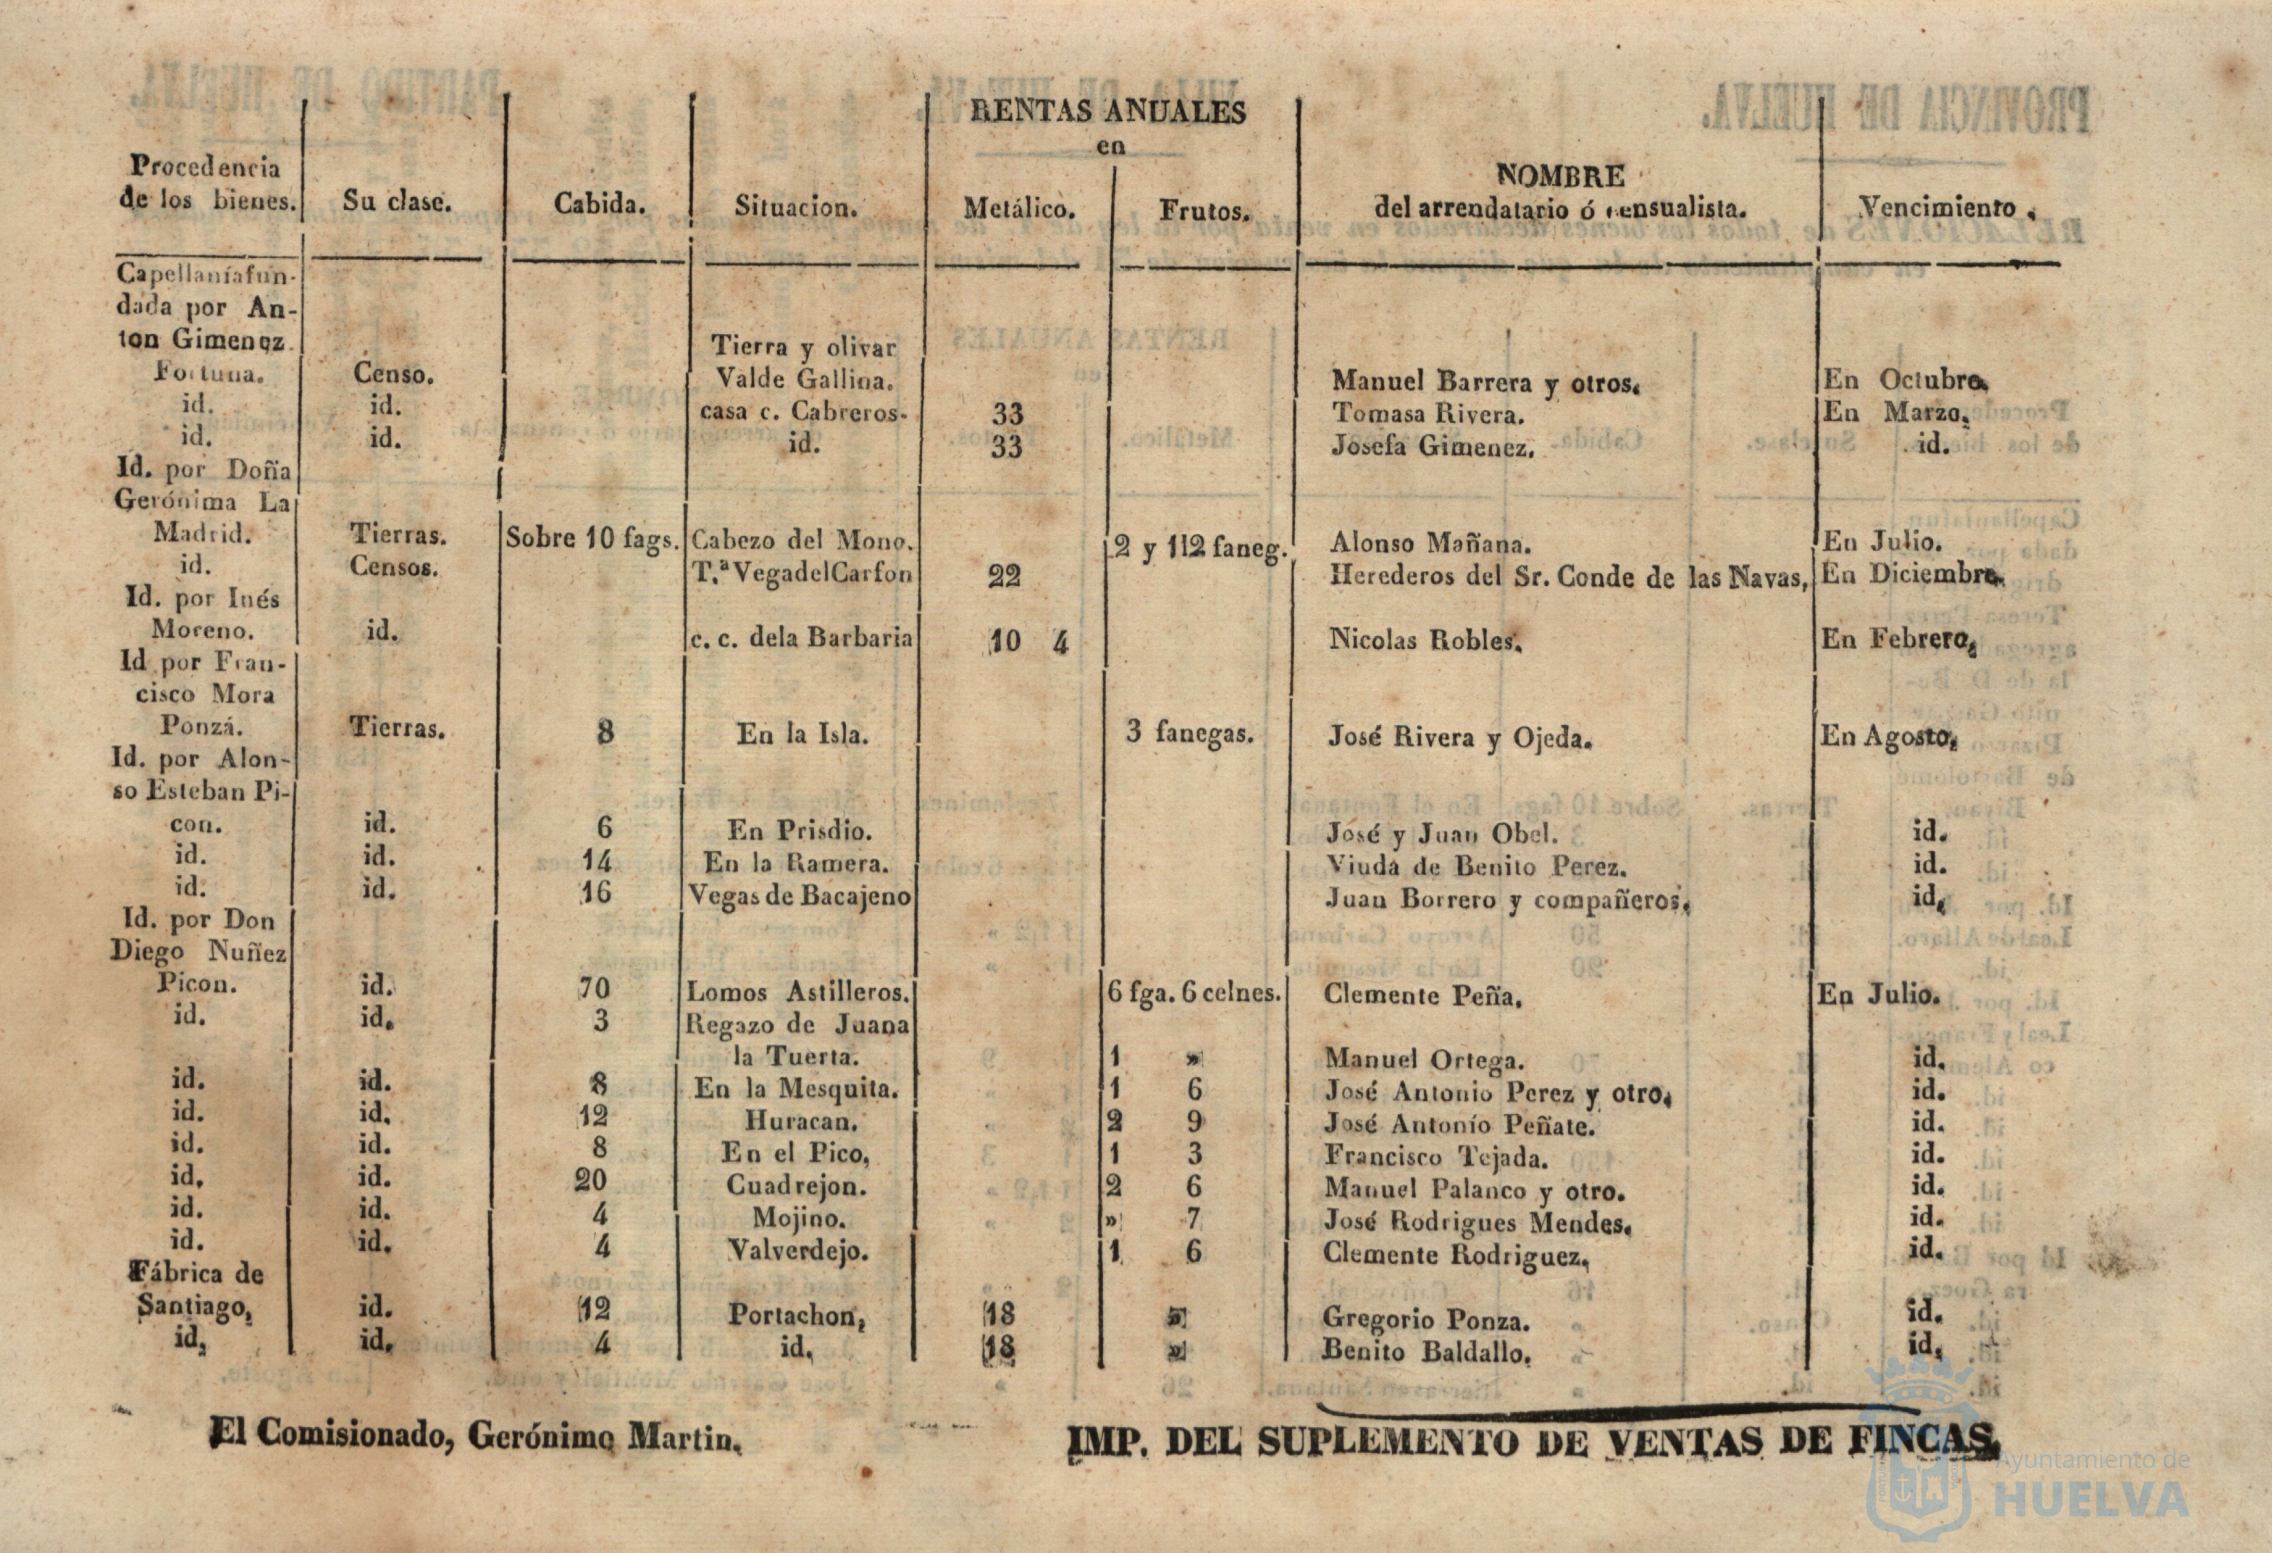 RENTAS ANUALES
en
Procedencia
de los bienes. Su clase. Cabida. Situacion. Metálico. Frutos. NOMBRE
del arrendatario ó censualista. Vencimiento.
Capellanía fun-
dada por An-
ton Gimenez
Fortuna. Censo. Tierra y olivar
Valde Gallina. Manuel Barrera y otros. En Octubre.
id. id. casa c. Cabreros. 33 Tomasa Rivera. En Marzo.
id. id. id. 33 Josefa Gimenez. id.
Id. por Doña
Gerónima La
Madrid. Tierras. Sobre 10 fags. Cabezo del Mono. 2 y 1|2 faneg. Alonso Mañana. En Julio.
id. Censos. T.ª Vega del Carfon 22 Herederos del Sr. Conde de las Navas, En Diciembre.
Id. por Inés
Moreno. id. c. c. dela Barbaria 10 4 Nicolas Robles. En Febrero,
Id por Fran-
cisco Mora
Ponzá. Tierras. 8 En la Isla. 3 fanegas. José Rivera y Ojeda. En Agosto,
Id. por Alon-
so Esteban Pi-
con. id. 6 En Prisdio. José y Juan Obel. id.
id. id. 14 En la Ramera. Viuda de Benito Perez. id.
id. id. 16 Vegas de Bacajeno Juan Borrero y compañeros. id,
Id. por Don
Diego Nuñez
Picon. id. 70 Lomos Astilleros. 6 fga. 6 celnes. Clemente Peña. En Julio.
id. id. 3 Regazo de Juana
la Tuerta. 1 » Manuel Ortega. id.
id. id. 8 En la Mesquita. 1 6 José Antonio Perez y otro. id.
id. id. 12 Huracan. 2 9 José Antonío Peñate. id.
id. id. 8 En el Pico, 1 3 Francisco Tejada. id.
id. id. 20 Cuadrejon. 2 6 Manuel Palanco y otro. id.
id. id. 4 Mojino. » 7 José Rodrigues Mendes. id.
id. id. 4 Valverdejo. 1 6 Clemente Rodriguez. id.
Fábrica de
Santiago, id. 12 Portachon, 18 » Gregorio Ponza. id.
id, id. 4 id. 18 » Benito Baldallo. id.
El Comisionado, Gerónimo Martin.
IMP. DEL SUPLEMENTO DE VENTAS DE FINCAS.
Ayuntamiento de
HUELVA